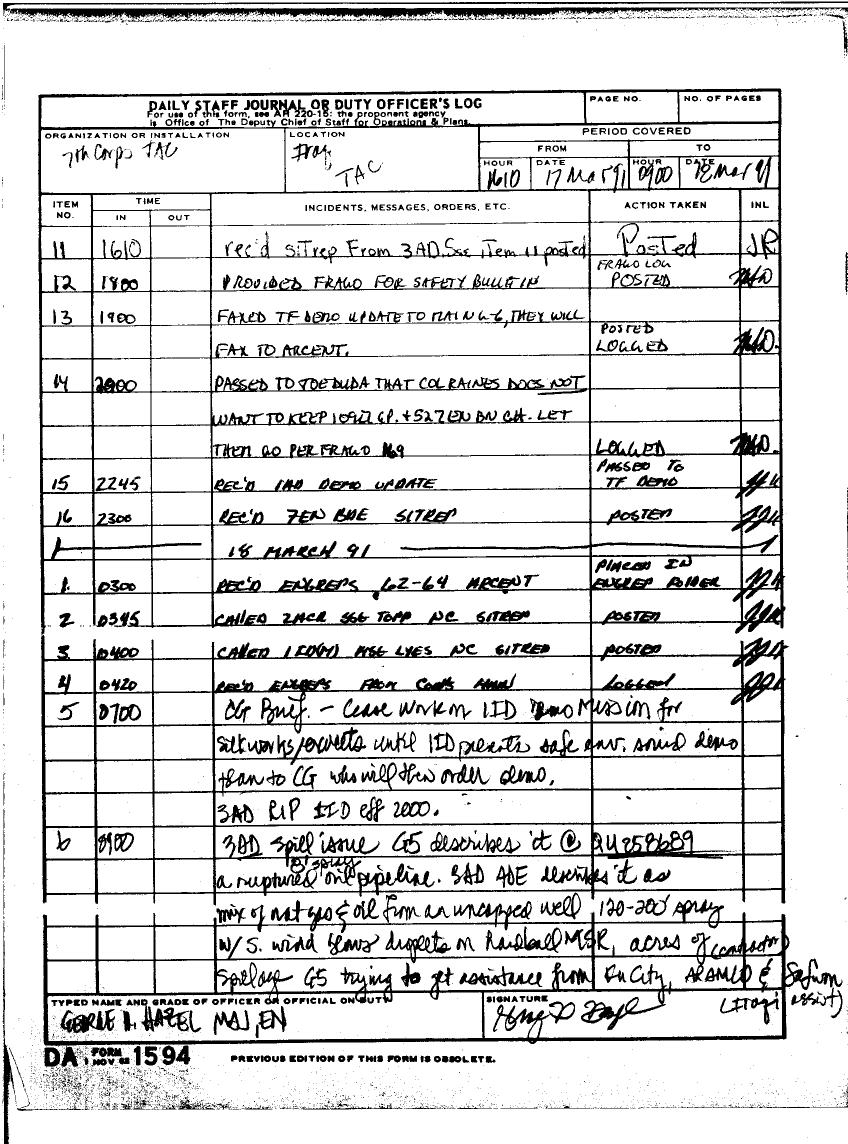 DAILY STAFF JOURNAL OR DUTY OFFICER'S LOG
For use of this form, see AR 220-15; the proponent agency
is Office of The Deputy Chief of Staff for Operations & Plans.
PAGE NO.
NO. OF PAGES
ORGANIZATION OR INSTALLATION
7th Corps TAC
LOCATION
Iraq
TAC
PERIOD COVERED
FROM
TO
HOUR
1610
DATE
17 Mar 91
HOUR
0900
DATE
18 Mar 91
ITEM NO.
TIME
IN
OUT
INCIDENTS, MESSAGES, ORDERS, ETC.
ACTION TAKEN
INL
11 1610 rec'd sitrep From 3AD. See item 11 posted Posted JR
FRAGO LOG
12 1800 PROVIDED FRAGO FOR SAFETY BULLETIN POSTED
13 1900 FAXED TF DEMO UPDATE TO MAIN G-6, THEY WILL
POSTED
FAX TO ARCENT. LOGGED
14 2000 PASSED TO JOE DUDA THAT COL RAINES DOES NOT
WANT TO KEEP 109th GP. + 527 EN BN CH. LET
THEM GO PER FRAGO 169 LOGGED
PASSED TO
15 2245 REC'D 1AD DEMO UPDATE TF DEMO
16 2300 REC'D 7EN BDE SITREP POSTED
18 MARCH 91
PLACED IN
1. 0300 REC'D ENGREPS 62-64 ARCENT ENGREP FOLDER
2 0345 CALLED 2ACR SSG TOPP NC SITREP POSTED
3 0400 CALLED 1ID(M) MSG LYES NC SITREP POSTED
4 0420 REC'D ENGREPS FROM CORPS MAIN LOGGED
5 0700 CG Brief. - Cease work on 1ID Demo Mission for
until 1ID presents safe env. sound demo
plan to CG who will then order demo.
3AD RIP 1ID eff 2000.
6 0900 3AD spill issue G5 describes it @ QU258689
a ruptured oil pipeline. 3AD ADE describes it as
mix of nat gas & oil from an uncapped well 120-200' spray
w/ S. wind blows droplets on hardball MSR, acres of
spillage G5 trying to get assistance from City, ARAMCO & Safwan
(Iraqi assist)
TYPED NAME AND GRADE OF OFFICER OR OFFICIAL ON DUTY
GEORGE D. HAZEL MAJ, EN
SIGNATURE
DA FORM 1594
1 NOV 62
PREVIOUS EDITION OF THIS FORM IS OBSOLETE.